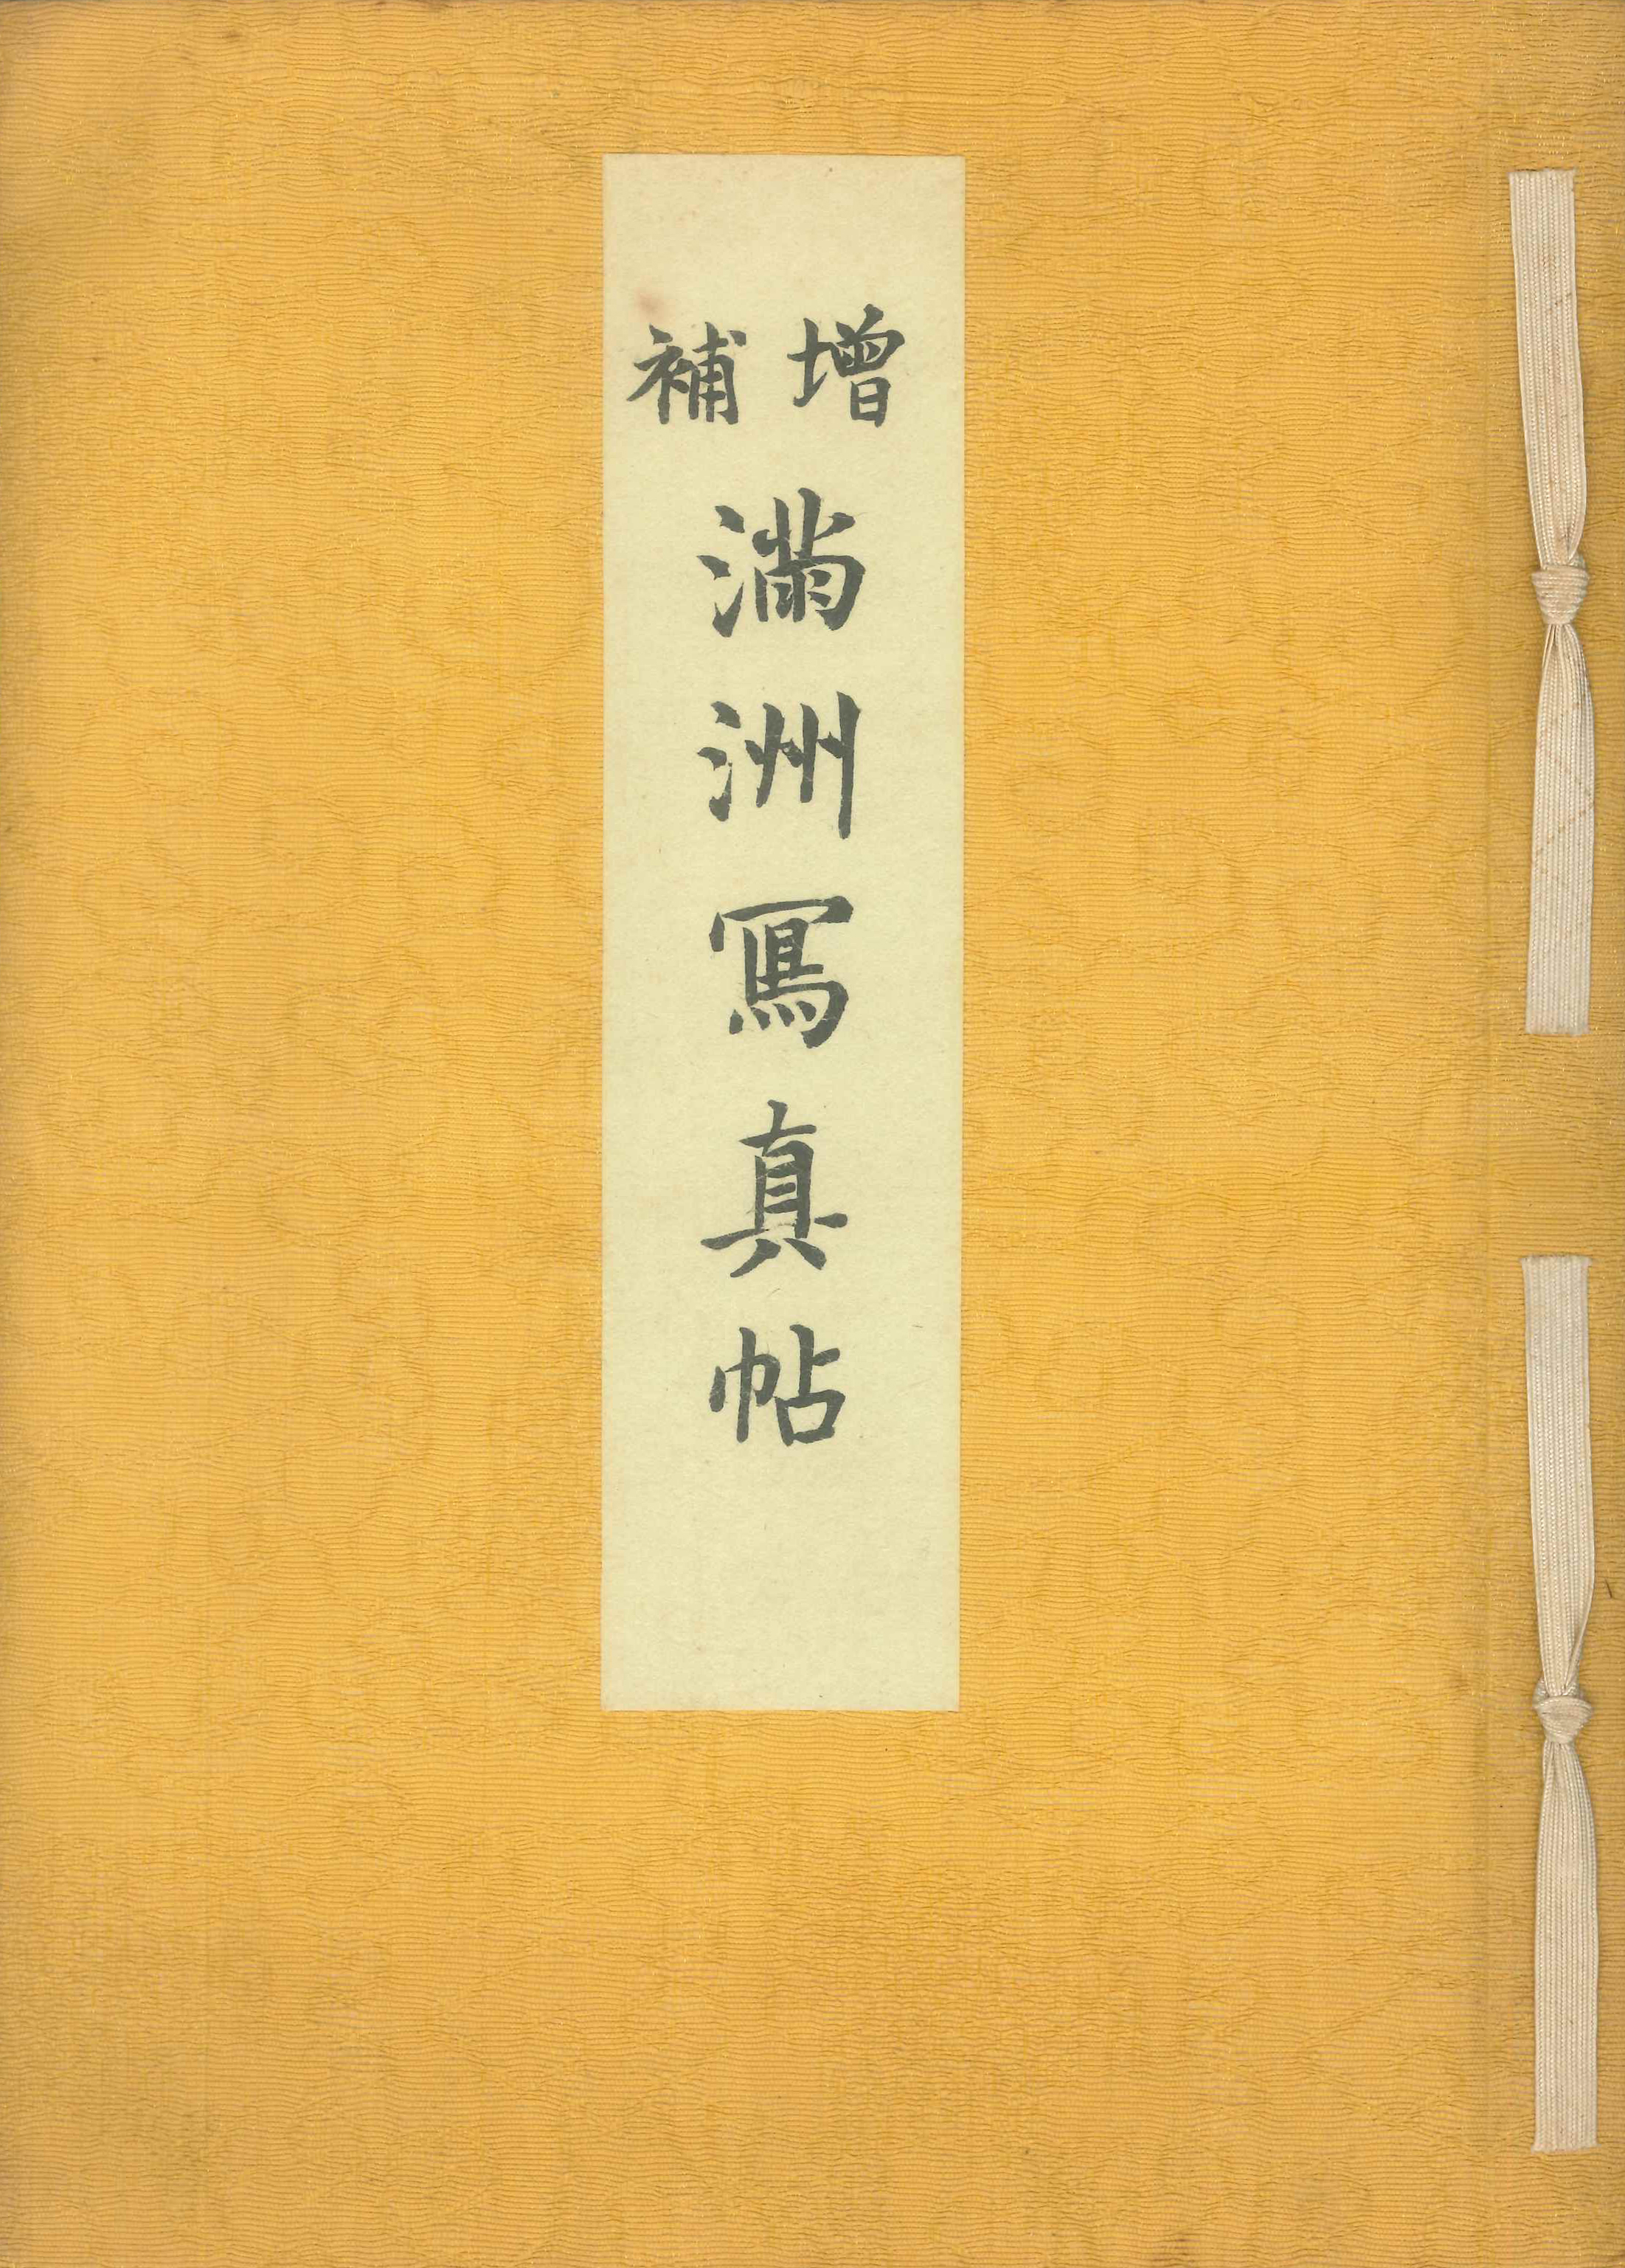 增補
滿洲寫真帖